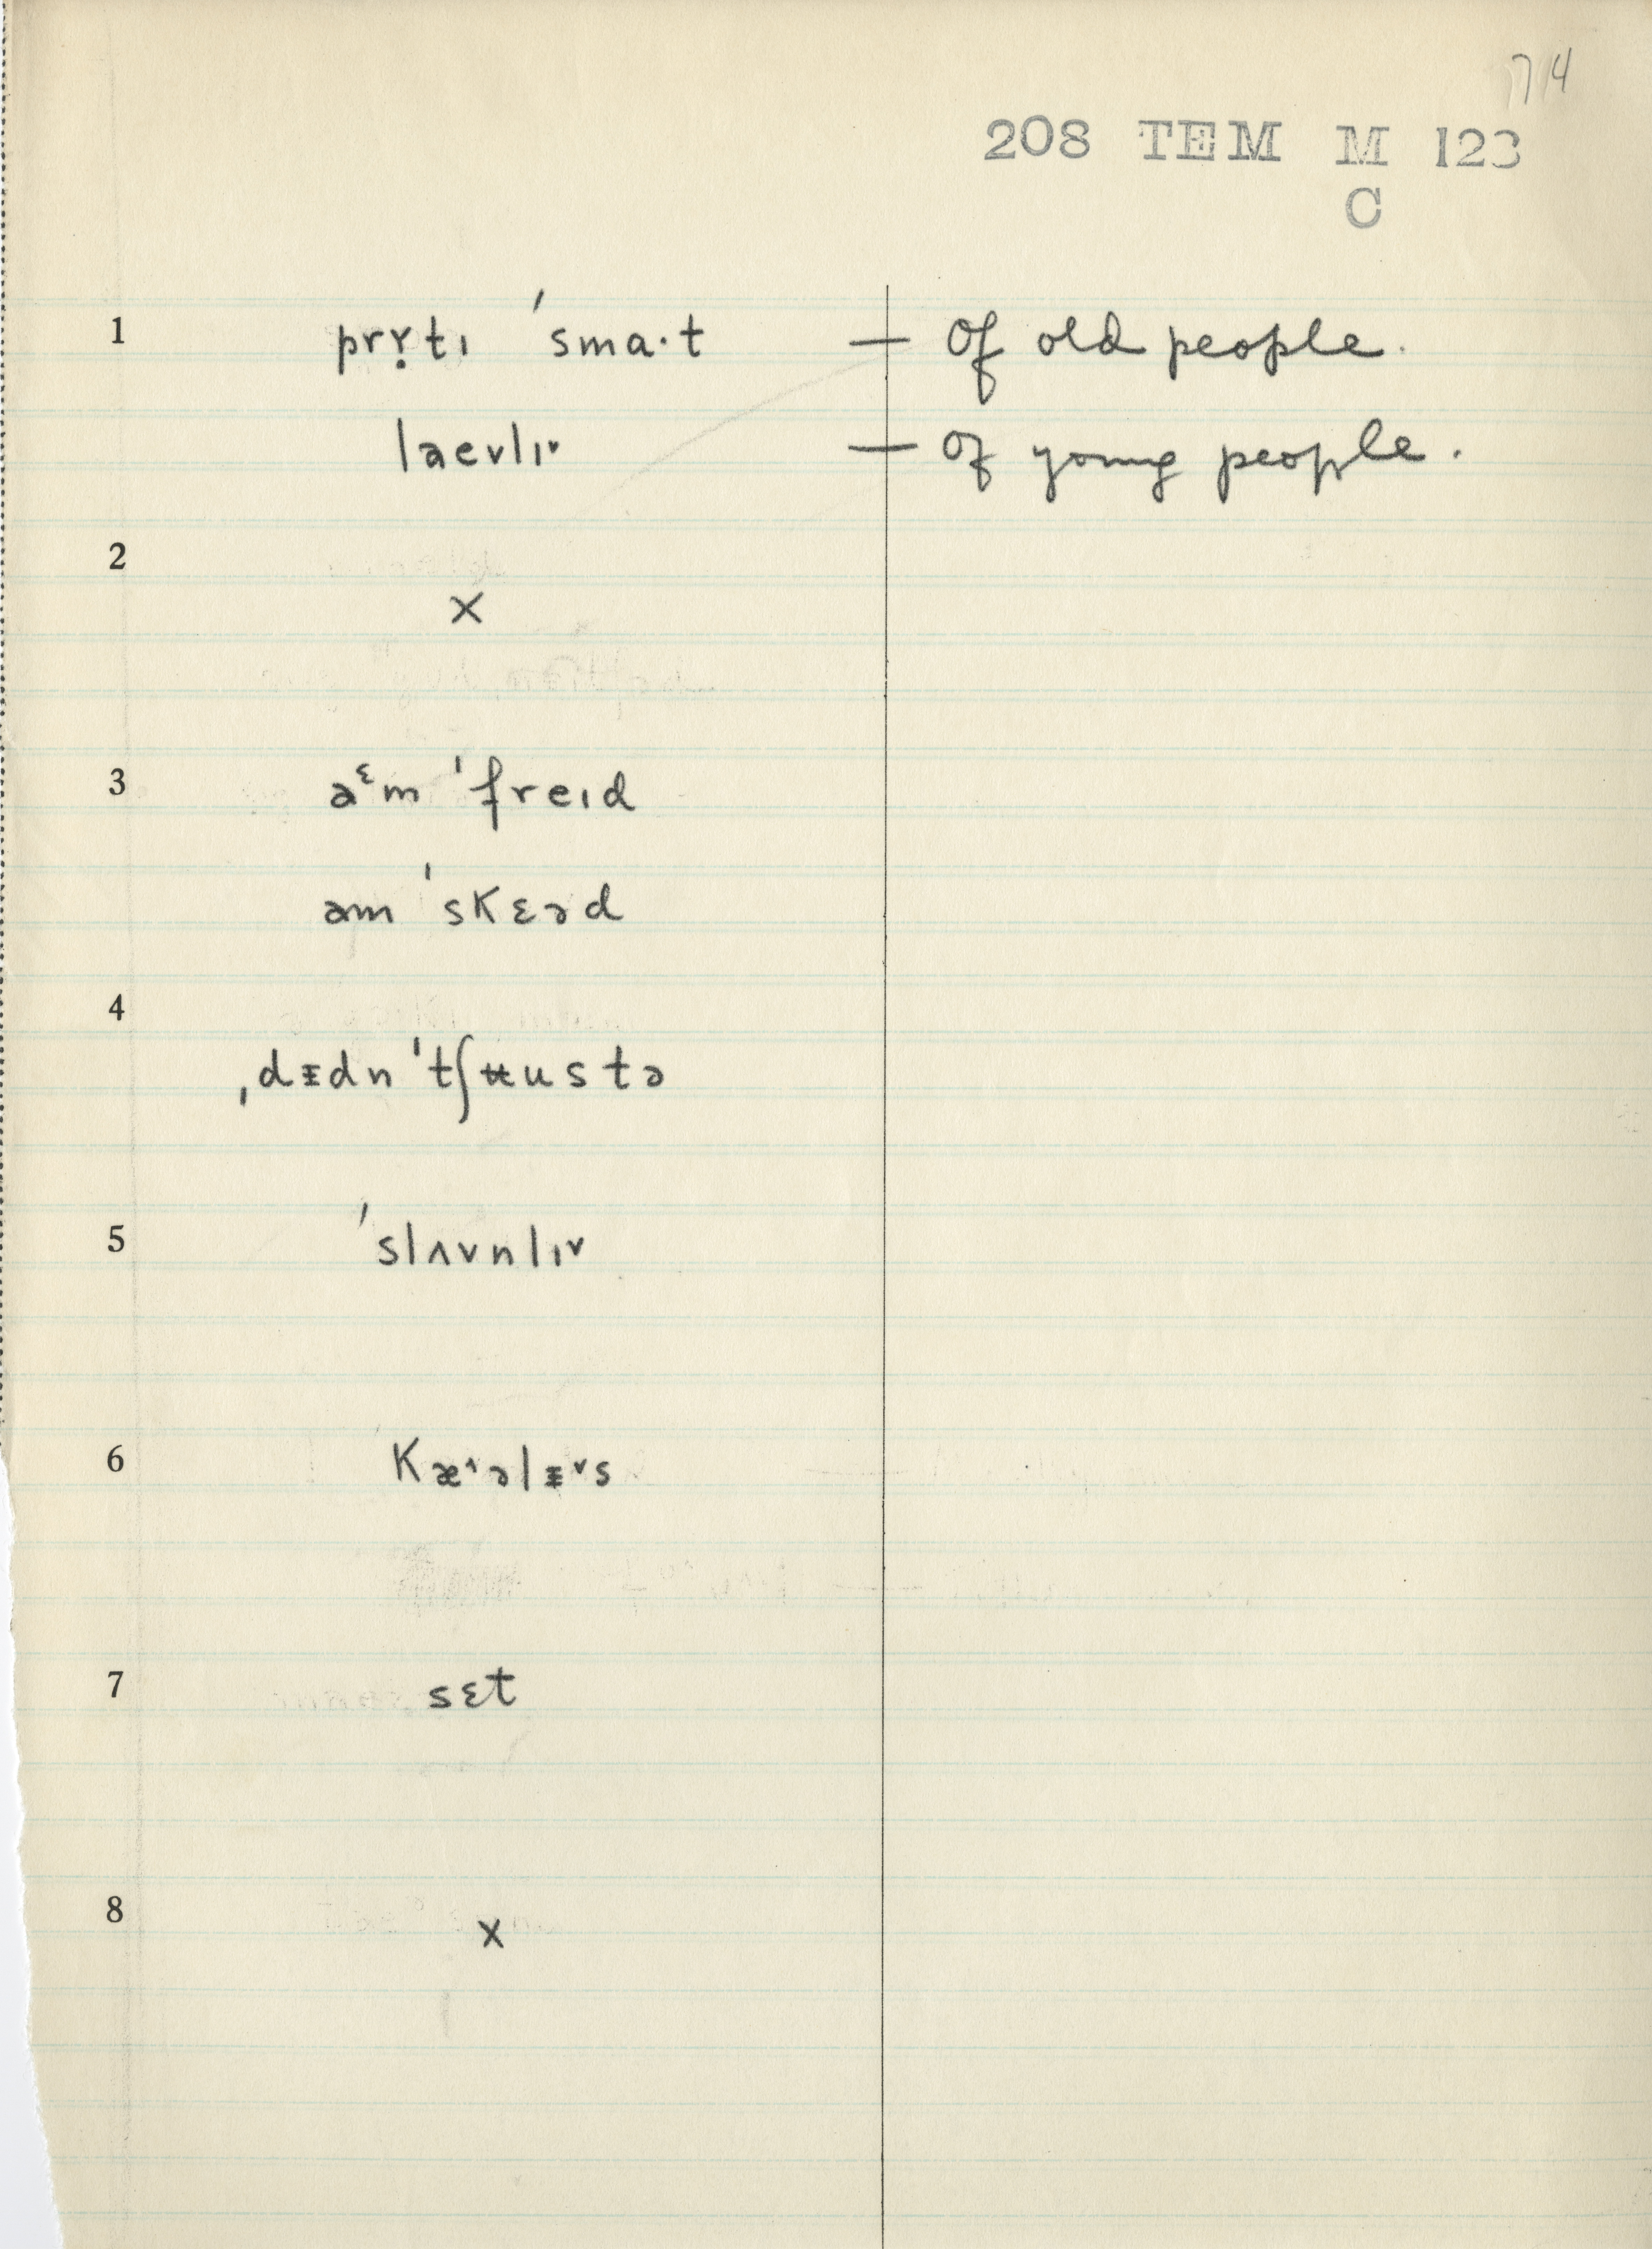 714
208 TEM M 123
C
1 prɤ̣tɪ ˈsmɑ·t — Of old people.
laevlɪ˅ — Of young people.
2
×
3 aᵋm ˈfreɪd
əm ˈskɛəd
4
ˌdɪ̵dn ˈtʃʉustə
5 ˈslʌvnlɪ˅
6 kæ˄əlɪ̵˅s
7 sɛt
8 ×